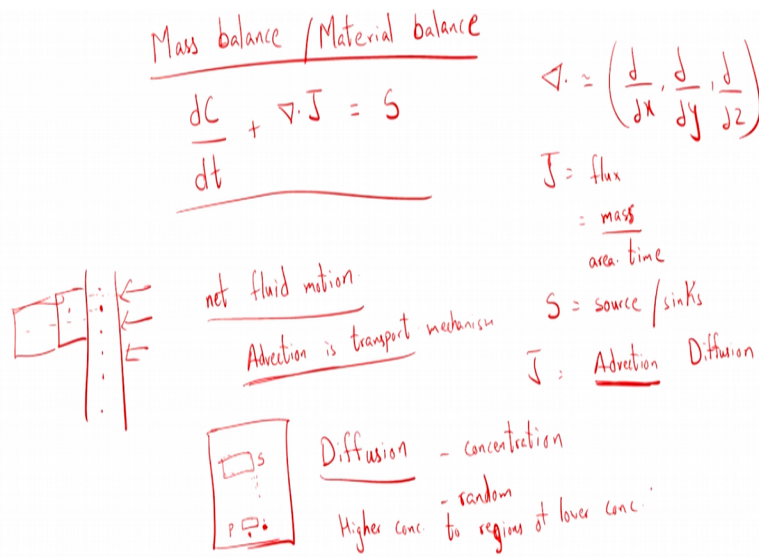 Mass balance / Material balance
dC/dt + ∇·J = S
∇· = (d/dx, d/dy, d/dz)
J = flux
= mass / area. time
S = source / sinks
J: Advection Diffusion
net fluid motion
Advection is transport mechanism
S
P
Diffusion - concentration
- random
Higher conc. to regions of lower conc.